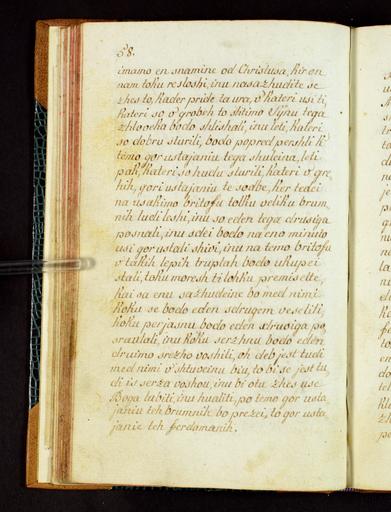 58.
imamo en snamine od Christusa, kir on
nam toku resloshi, inu nasazhudite se
zhes to, kader pride ta ura, v kateri usi ti,
kateri so v grobeh to shtimo Synu tega
zhloveka bodo slishali, inu leti, kateri
so dobru sturili, bodo popred pershli k
temo gor ustajaniu tega shuleina, leti
pak, kateri so hudu sturili, kateri v gre,
hih, gori ustajaniu te sodbe, ker tedei
na usakimo britofu tolku veliku brum,
nih ludi leshi, inu so eden tega drusiga
posnali, inu sdei bodo na eno minuto
usi gor ustali shivi, inu na temo britofu
v takih lepih truplah bodo ukupei
stali, toku moresh ti lohku premislite,
kai sa enu sazhudeine bo med nimi
Koku se bodo eden sdrugem veselili,
koku perjasnu bodo eden drusiga po,
sravlali, inu Koku serzhnu bodo eden
druimo srezho voshili, oh deb jest tudi
med nimi v shtiveinu biu, to bi se jest tu,
di is serza voshou, inu bi otu zhes use
Boga lubiti, inu hualiti, po temo gor usta,
janiu teh brumnih bo prezei, to gor usta
janie teh ferdamanih.